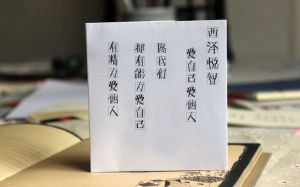 西泽悦智
爱自己 爱他人
愿我们
都有能力爱自己
有精力爱他人